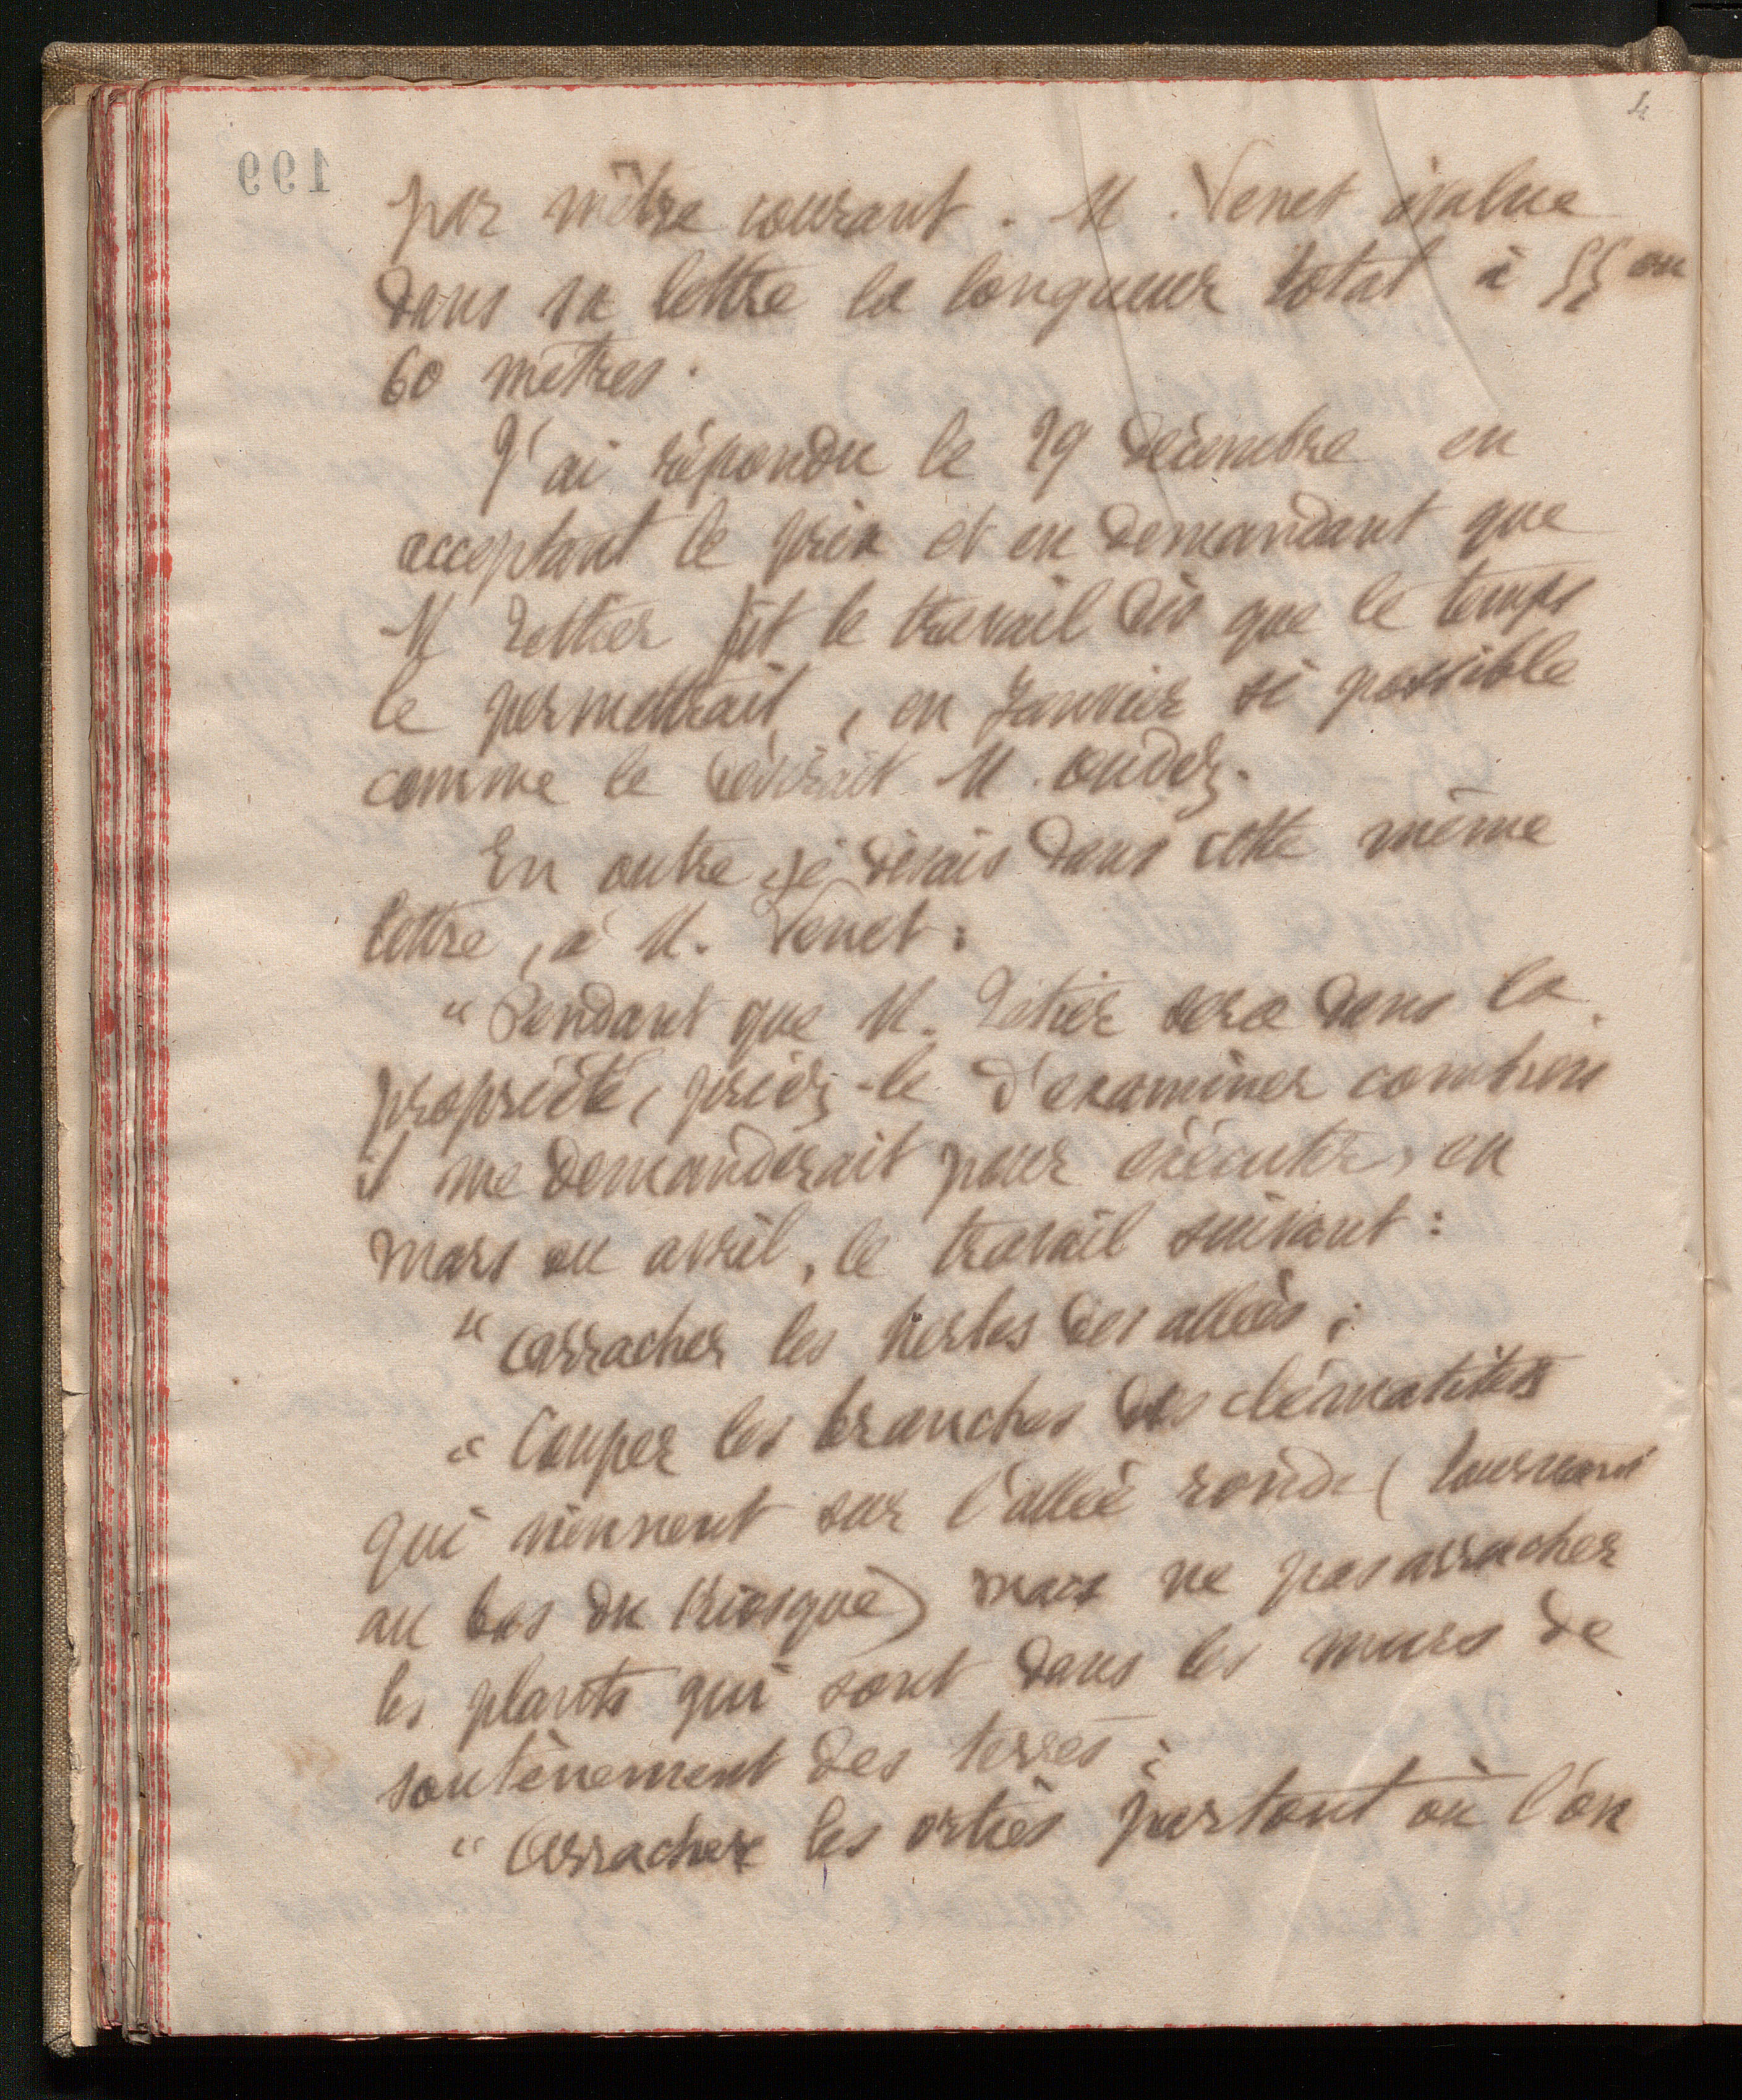 4
199
par mètre courant. M. Venet évalue
dans sa lettre la longueur total à 55 ou
60 mètres.
J'ai répondu le 29 décembre en
acceptant le prix et en demandant que
M fit le travail dès que le temps
le permettrait, en Janvier si possible
comme le désirait M. oudez.
En outre je disais dans cette même
lettre, à M. Venet :
" Pendant que M. sera dans la
propriété, priez-le d'examiner combien
il me demanderait pour exécuter, en
mars ou avril, le travail suivant :
" arracher les herbes des allées ;
" Couper les branches des clématites
qui viennent sur l'allée ronde (tournant
au bas du Kiosque) mais ne pas arracher
les plants qui sont dans les murs de
soutènement des terres ;
" arracher les orties partout où l'on